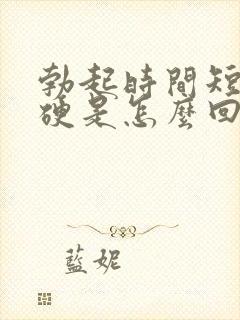 勃起時間短
硬是怎麼回
藍妮